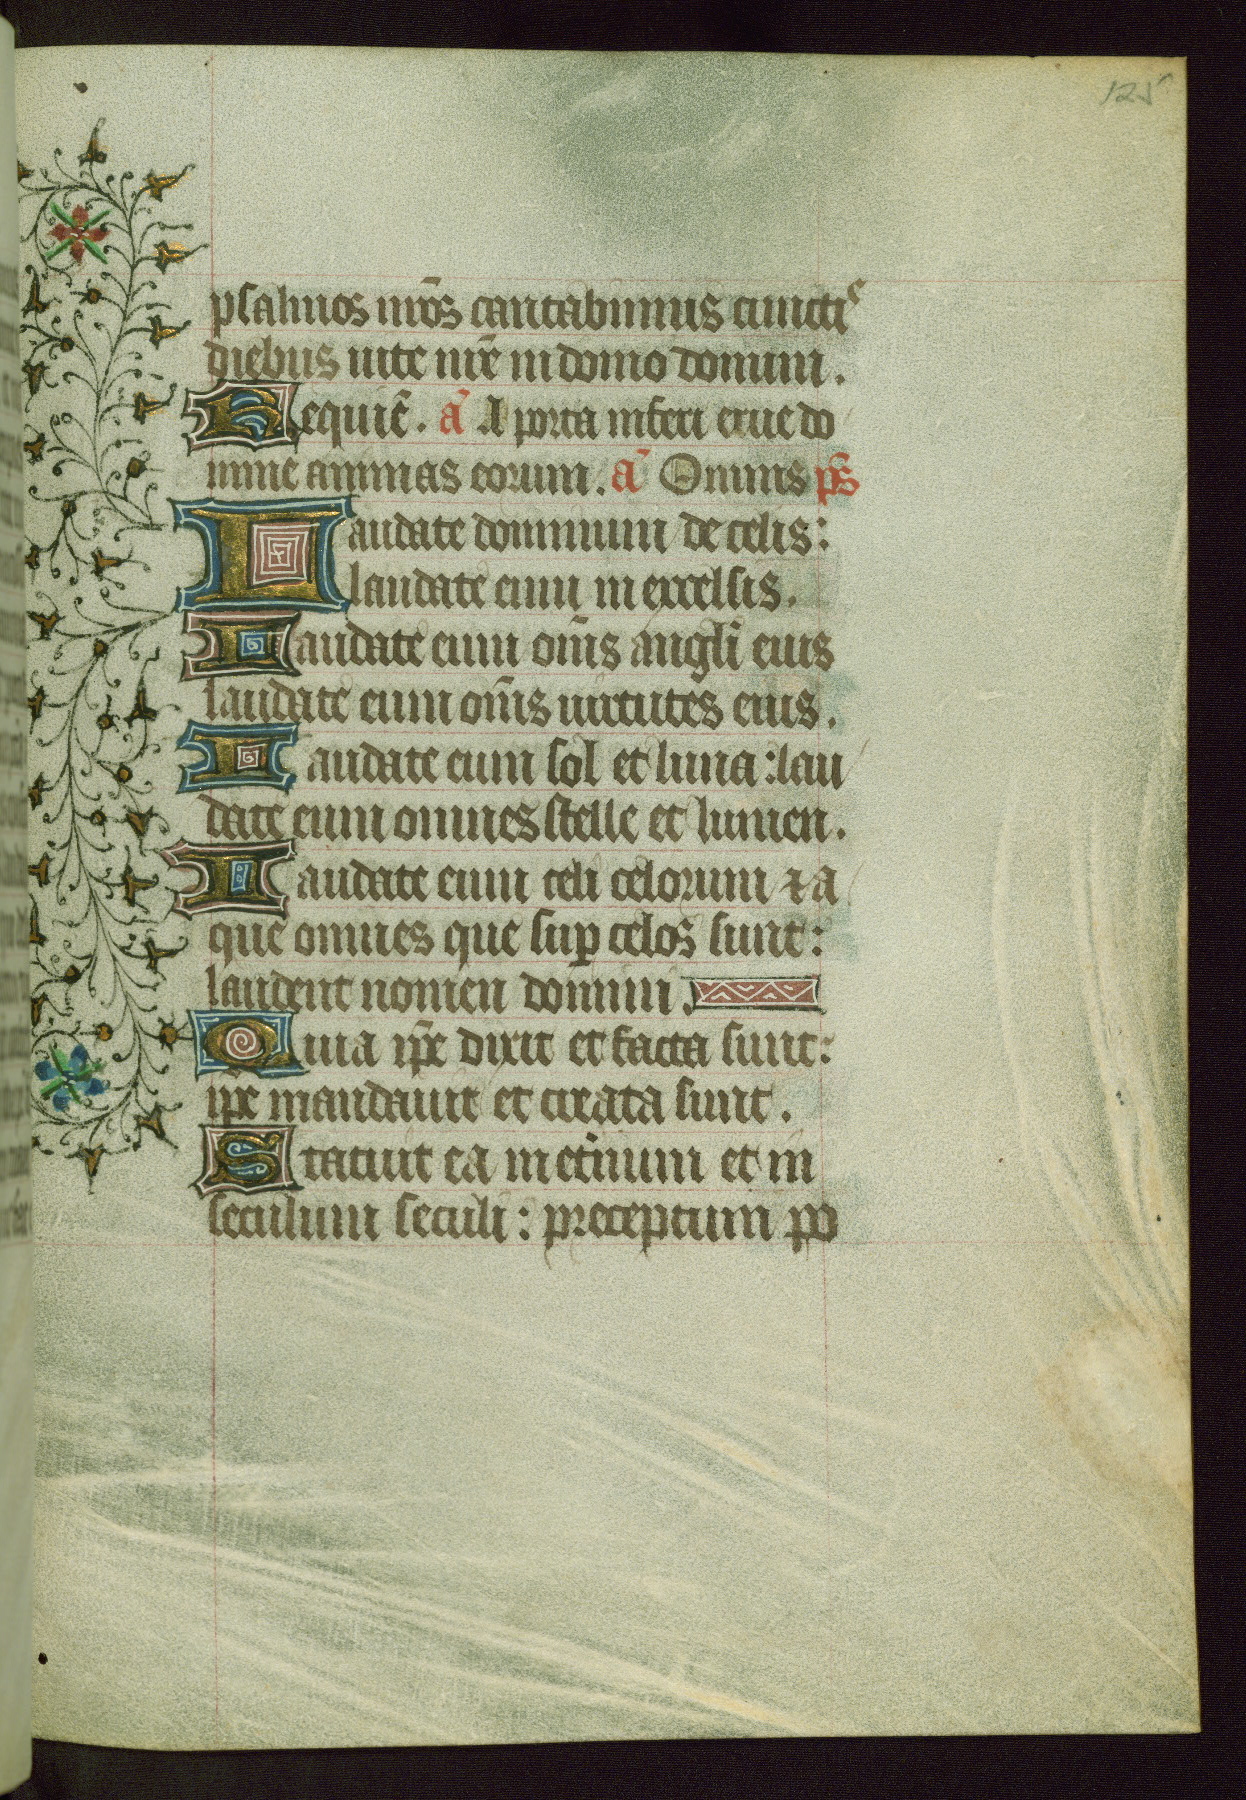 125
psalmos nr̄os cantabimus cunctis
diebus uite nr̄e in domo domini.
Requiē. a᷑ A porta inferi erue do
mine animas eorum. a᷑ Omnis ps̄
Laudate dominum de celis:
laudate eum in excelsis.
Laudate eum om̄s angeli eius
laudate eum om̄s uirtutes eius.
Laudate eum sol et luna: lau
date eum omnes stelle et lumen.
Laudate eum celi celorum ⁊ a
que omnes que suꝑ celos sunt:
laudent nomen domini.
Quia ip̄e dixit et facta sunt:
ip̄e mandauit et creata sunt.
Statuit ea in et̄num et in
seculum seculi: preceptum po